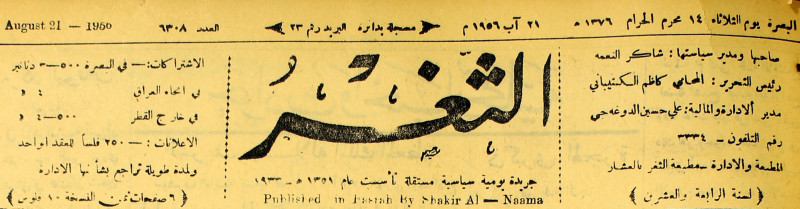 البصرة يوم الثلاثاء ١٤ محرم الحرام ١٣٧٦ ه
٢١ آب ١٩٥٦ م
مسجلة بدائرة البريد رقم ٢٣
العدد ٦٣٠٨
August 21 — 1956
صاحبها ومدير سياستها : شاكر النعمه
رئيس التحرير : المحامي كاظم الكشيباني
مدير الادارة والمالية : علي حسين الدوغه جي
رقم التلفون - ٣٣٣٤
المطبعة والادارة - مطبعة الثغر بالعشار
( لسنة الرابعة والعشرين )
الثغر
جريدة يومية سياسية مستقلة تأسست عام ١٣٥١ ه - ١٩٣٣
Published in Basrah By Shakir Al — Naama
الاشتراكات :— في البصرة ٥٠٠-٣ دنانير
في انحاء العراق ٤ د
في خارج القطر ٥٠٠-٤ د
الاعلانات :— ٢٥٠ فلساً للعقد الواحد
ولمدة طويلة تراجع بشأنها الادارة
( ٦ صفحات ثمن النسخة ١٠ فلوس )